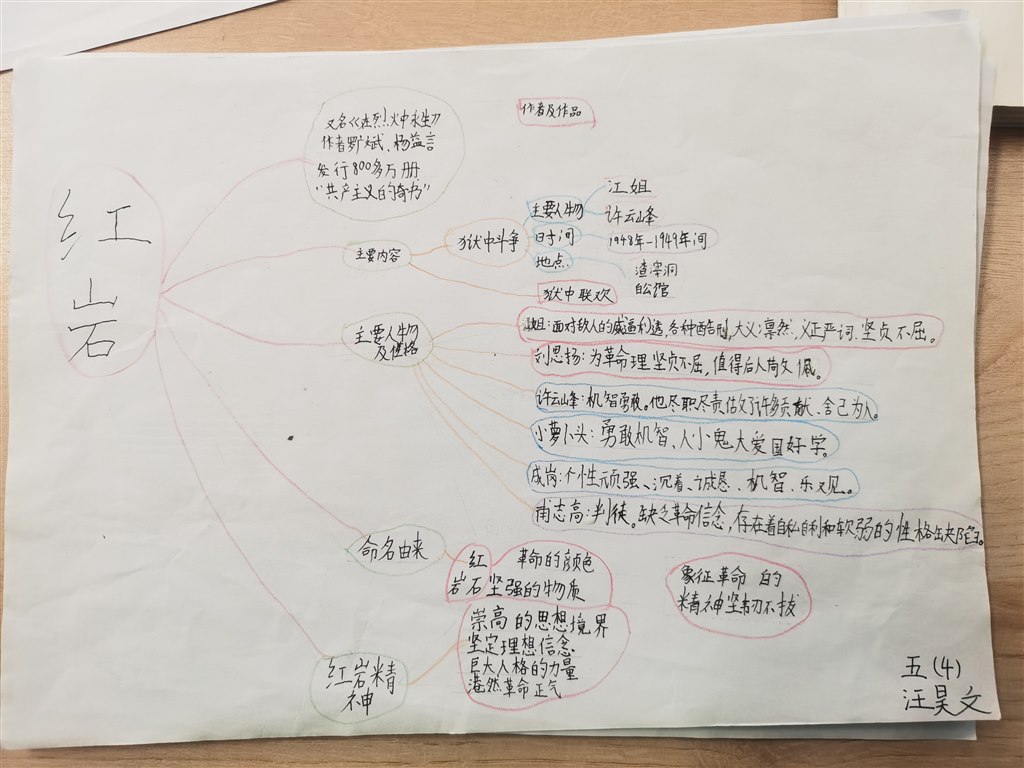 红
岩
又名《在烈火中永生》
作者罗广斌、杨益言
发行800多万册
"共产主义的奇书"
作者及作品
主要内容
狱中斗争
主要人物
江姐
许云峰
时间
1948年-1949年间
地点
渣宰洞
白公馆
狱中联欢
主要人物
及性格
江姐:面对敌人的威逼利透,各种酷刑,大义凛然,义正严词.坚贞不屈。
刘思扬:为革命理坚贞不屈,值得后人倚佩。
许云峰:机智勇敢。他尽职尽责估攵了许多贡献、舍己为人。
小萝卜头:勇敢机智、人小鬼大爱国好字。
成岗:个性顽强、沉着、诚恳、机智、乐又见。
甫志高:判徒。缺乏革命信念,存在着自私自利和软弱的性格缺陷。
命名由来
红
岩石
革命的颜色
坚强的物质
象征革命的
精神坚韧不拔
红岩精
神
崇高的思想境界
坚定理想信念
巨大人格的力量
浩然革命正气
五(4)
汪昊文